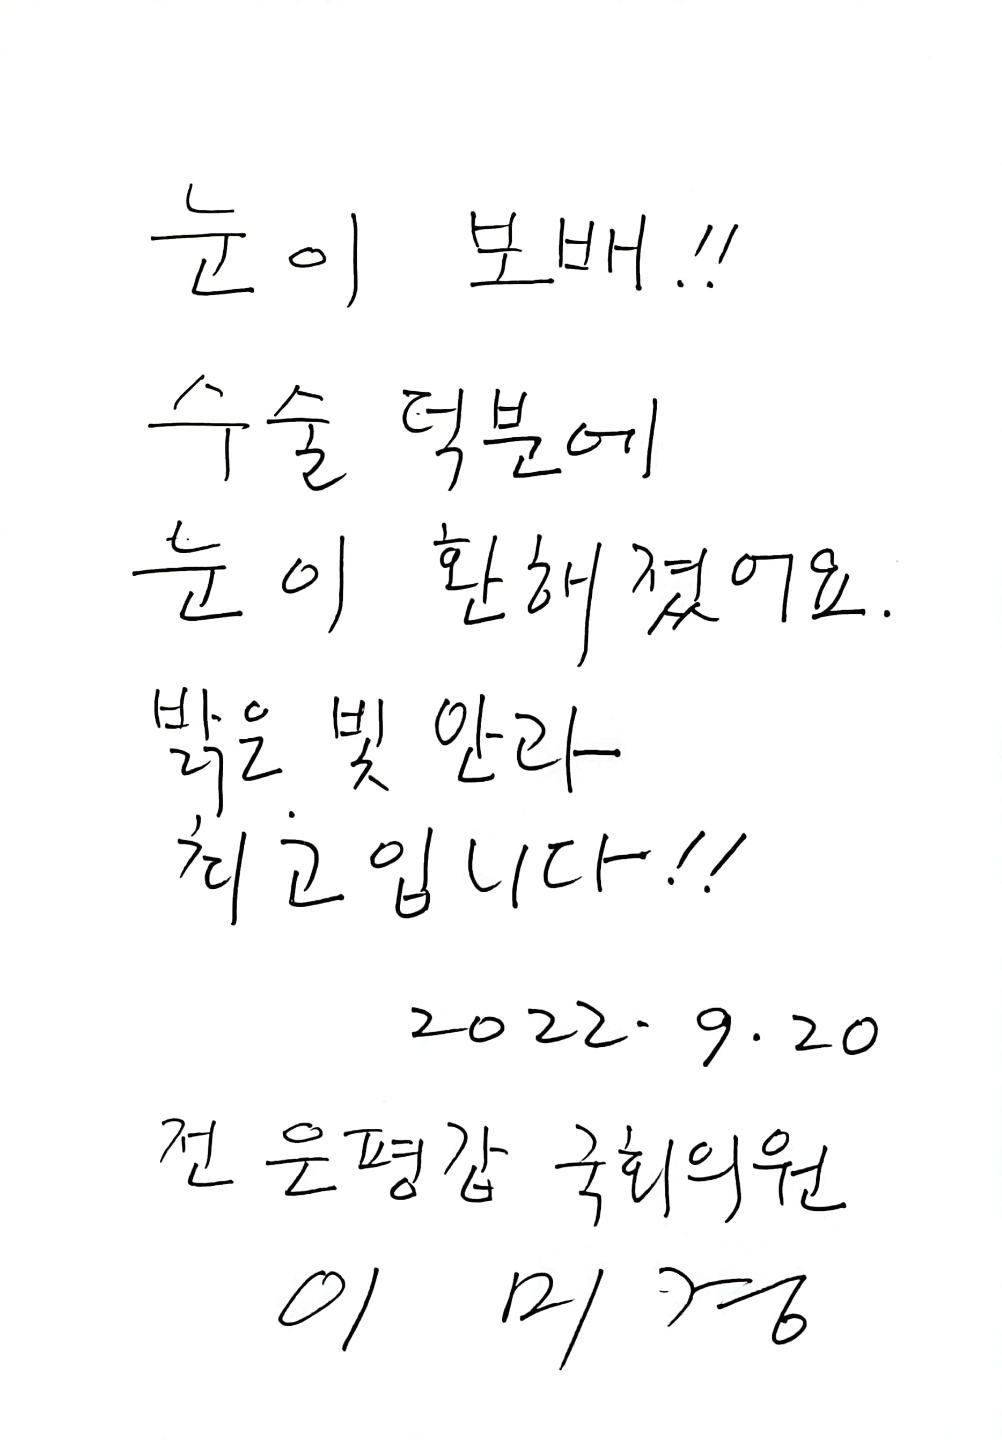 눈이 보배!!
수술 덕분에
눈이 환해졌어요.
밝은 빛 안과
최고입니다!!
2022. 9. 20
전 은평갑 국회의원
이 미 경